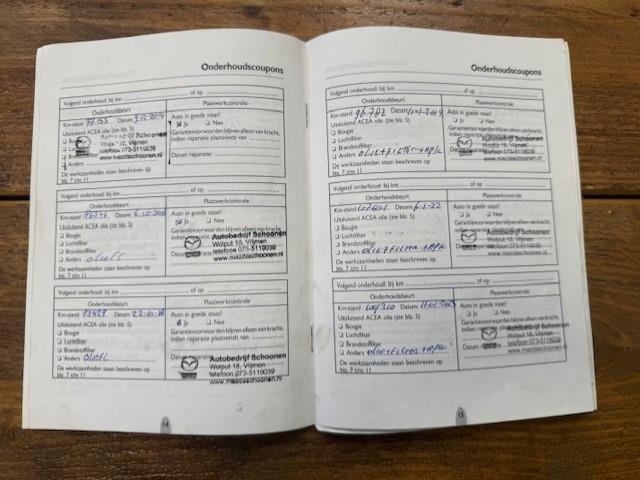 Onderhoudscoupons
Volgend onderhoud: bij km of op
Onderhoudsbeurt Plaatwerkcontrole
Km-stand 77.155 Datum Auto in goede staat?
Uitsluitend ACEA olie (zie blz. 5) Ja Nee
Bougie Garantievoorwaarden blijven alleen van kracht,
Luchtfilter indien reparatie plaatsvindt van
Brandstoffilter Datum reparatie:
Anders
Schoonen
Wolput 18, Vlijmen
telefoon 073-5119039
www.mazdaschoonen.nl
De werkzaamheden staan beschreven op
blz. 7 t/m 11
Volgend onderhoud: bij km of op
Onderhoudsbeurt Plaatwerkcontrole
Km-stand Datum Auto in goede staat?
Uitsluitend ACEA olie (zie blz. 5) Ja Nee
Bougie
Luchtfilter
Brandstoffilter
Anders
Autobedrijf Schoonen
Wolput 18, Vlijmen
telefoon 073-5119039
www.mazdaschoonen.nl
De werkzaamheden staan beschreven op
blz. 7 t/m 11
Volgend onderhoud: bij km of op
Onderhoudsbeurt Plaatwerkcontrole
Km-stand 93429 Datum Auto in goede staat?
Uitsluitend ACEA olie (zie blz. 5) Ja Nee
Bougie Garantievoorwaarden blijven alleen van kracht,
Luchtfilter indien reparatie plaatsvindt van
Brandstoffilter
Anders
Autobedrijf Schoonen
Wolput 18, Vlijmen
telefoon 073-5119039
www.mazdaschoonen.nl
De werkzaamheden staan beschreven op
blz. 7 t/m 11
14
Onderhoudscoupons
Volgend onderhoud: bij km of op
Onderhoudsbeurt Plaatwerkcontrole
Km-stand 96.782 Datum Auto in goede staat?
Uitsluitend ACEA olie (zie blz. 5) Ja Nee
Bougie Garantievoorwaarden blijven alleen van kracht,
Luchtfilter
Brandstoffilter
Anders olie+Filter+APK
Autobedrijf Schoonen
Wolput 18, Vlijmen
telefoon 073-5119039
www.mazdaschoonen.nl
De werkzaamheden staan beschreven op
blz. 7 t/m 11
Volgend onderhoud: bij km of op
Onderhoudsbeurt Plaatwerkcontrole
Km-stand Datum 6-1-22 Auto in goede staat?
Uitsluitend ACEA olie (zie blz. 5) Ja Nee
Bougie Garantievoorwaarden blijven alleen van kracht,
Luchtfilter
Brandstoffilter
Anders olie+Filter+APK
Autobedrijf Schoonen
Wolput 18, Vlijmen
telefoon 073-5119039
www.mazdaschoonen.nl
De werkzaamheden staan beschreven op
blz. 7 t/m 11
Volgend onderhoud: bij km of op
Onderhoudsbeurt Plaatwerkcontrole
Km-stand Datum Auto in goede staat?
Uitsluitend ACEA olie (zie blz. 5) Ja Nee
Bougie Garantievoorwaarden blijven alleen van kracht,
Luchtfilter
Brandstoffilter
Anders
Autobedrijf Schoonen
Wolput 18, Vlijmen
telefoon 073-5119039
www.mazdaschoonen.nl
De werkzaamheden staan beschreven op
blz. 7 t/m 11
15